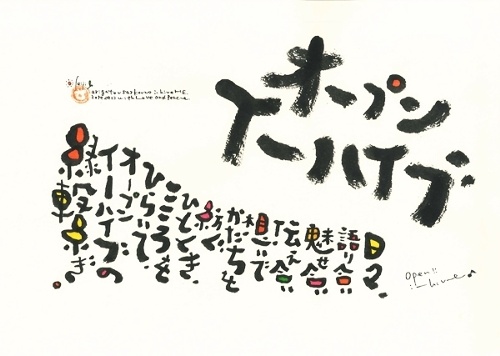 オープン
イーハイブ
日々、
語り合い
魅せ合い
伝え合い
想いで
かたちを
紡ぐ
ひととき、
こころを
ひらいて、
オープン
イーハイブの
縁繋ぎ。
open!!